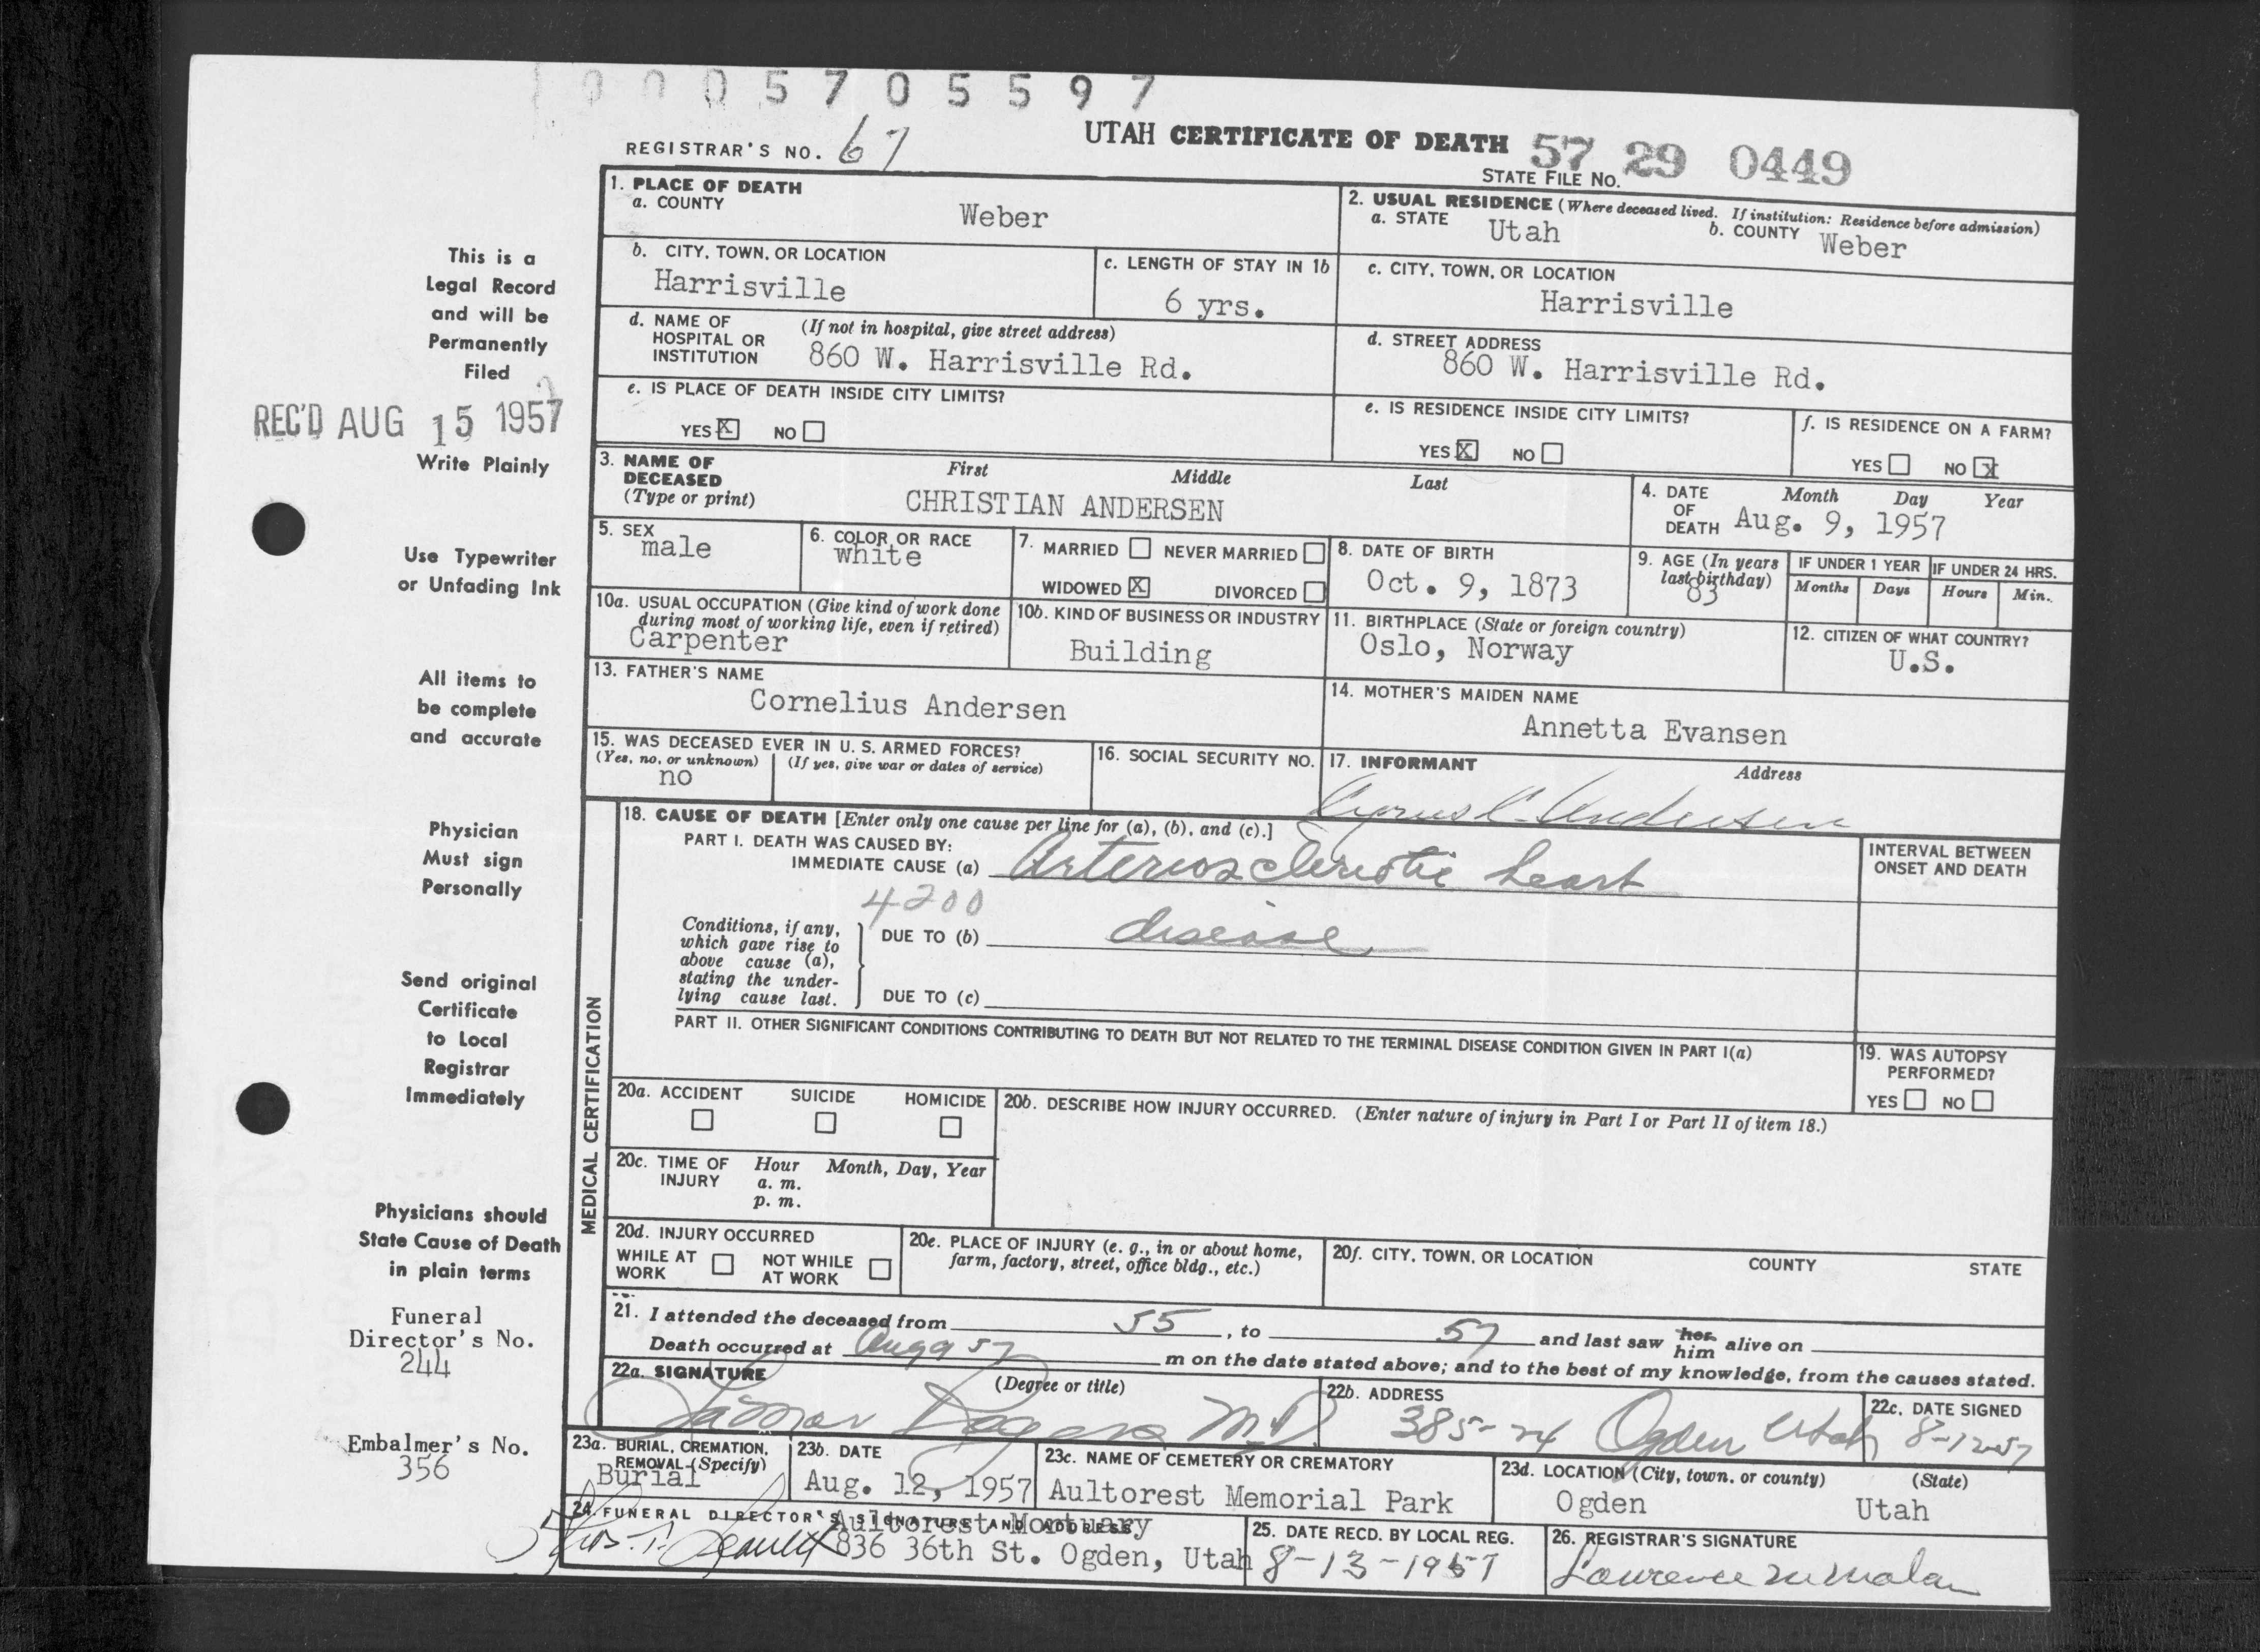 0005705597
REGISTRAR'S NO. 67
UTAH CERTIFICATE OF DEATH
STATE FILE NO. 57 29 0449
1. PLACE OF DEATH
a. COUNTY
Weber
2. USUAL RESIDENCE (Where deceased lived. If institution: Residence before admission)
a. STATE Utah
b. COUNTY Weber
b. CITY, TOWN, OR LOCATION
Harrisville
c. LENGTH OF STAY IN 1b
6 yrs.
c. CITY, TOWN, OR LOCATION
Harrisville
d. NAME OF HOSPITAL OR INSTITUTION
(If not in hospital, give street address)
860 W. Harrisville Rd.
d. STREET ADDRESS
860 W. Harrisville Rd.
e. IS PLACE OF DEATH INSIDE CITY LIMITS?
YES X NO
e. IS RESIDENCE INSIDE CITY LIMITS?
YES X NO
f. IS RESIDENCE ON A FARM?
YES NO X
3. NAME OF DECEASED
(Type or print)
First Middle Last
CHRISTIAN ANDERSEN
4. DATE OF DEATH
Month Day Year
Aug. 9, 1957
5. SEX
male
6. COLOR OR RACE
white
7. MARRIED NEVER MARRIED
WIDOWED X DIVORCED
8. DATE OF BIRTH
Oct. 9, 1873
9. AGE (In years last birthday)
83
IF UNDER 1 YEAR
Months Days
IF UNDER 24 HRS.
Hours Min.
10a. USUAL OCCUPATION (Give kind of work done during most of working life, even if retired)
Carpenter
10b. KIND OF BUSINESS OR INDUSTRY
Building
11. BIRTHPLACE (State or foreign country)
Oslo, Norway
12. CITIZEN OF WHAT COUNTRY?
U.S.
13. FATHER'S NAME
Cornelius Andersen
14. MOTHER'S MAIDEN NAME
Annetta Evansen
15. WAS DECEASED EVER IN U. S. ARMED FORCES?
(Yes, no, or unknown)
no
(If yes, give war or dates of service)
16. SOCIAL SECURITY NO.
17. INFORMANT Address
Cyrus C. Andersen
MEDICAL CERTIFICATION
18. CAUSE OF DEATH [Enter only one cause per line for (a), (b), and (c).]
PART I. DEATH WAS CAUSED BY:
IMMEDIATE CAUSE (a) Arteriosclerotic heart
4200
Conditions, if any, which gave rise to above cause (a), stating the under- lying cause last.
DUE TO (b) disease
DUE TO (c)
INTERVAL BETWEEN ONSET AND DEATH
PART II. OTHER SIGNIFICANT CONDITIONS CONTRIBUTING TO DEATH BUT NOT RELATED TO THE TERMINAL DISEASE CONDITION GIVEN IN PART I(a)
19. WAS AUTOPSY PERFORMED?
YES NO
20a. ACCIDENT SUICIDE HOMICIDE
20b. DESCRIBE HOW INJURY OCCURRED. (Enter nature of injury in Part I or Part II of item 18.)
20c. TIME OF INJURY
Hour Month, Day, Year
a. m.
p. m.
20d. INJURY OCCURRED
WHILE AT WORK NOT WHILE AT WORK
20e. PLACE OF INJURY (e. g., in or about home, farm, factory, street, office bldg., etc.)
20f. CITY, TOWN, OR LOCATION COUNTY STATE
21. I attended the deceased from 55, to 57 and last saw her him alive on
Death occurred at Aug 9 57 m on the date stated above; and to the best of my knowledge, from the causes stated.
22a. SIGNATURE (Degree or title)
LaMar Rogers M.D.
22b. ADDRESS
385-24 Ogden Utah
22c. DATE SIGNED
8-12-57
23a. BURIAL, CREMATION, REMOVAL (Specify)
Burial
23b. DATE
Aug. 12, 1957
23c. NAME OF CEMETERY OR CREMATORY
Aultorest Memorial Park
23d. LOCATION (City, town, or county) (State)
Ogden Utah
24. FUNERAL DIRECTOR'S SIGNATURE AND ADDRESS
Aultorest Mortuary
836 36th St. Ogden, Utah
25. DATE RECD. BY LOCAL REG.
8-13-1957
26. REGISTRAR'S SIGNATURE
Lawrence M Malan
This is a
Legal Record
and will be
Permanently
Filed
REC'D AUG 15 1957
Write Plainly
Use Typewriter
or Unfading Ink
All items to
be complete
and accurate
Physician
Must sign
Personally
Send original
Certificate
to Local
Registrar
Immediately
Physicians should
State Cause of Death
in plain terms
Funeral
Director's No.
244
Embalmer's No.
356